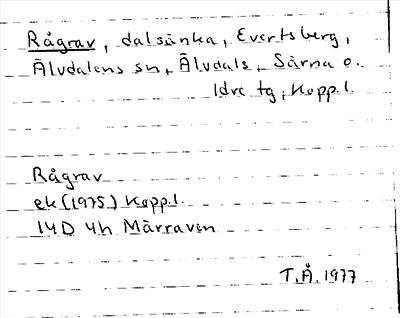 Rågrav, dalsänka, Evertsberg,
Älvdalens sn, Älvdals, Särna o.
Idre tg, Kopp.l.
Rågrav
ek (1975) Kopp.l.
14D 4h Märraven
T.Å. 1977